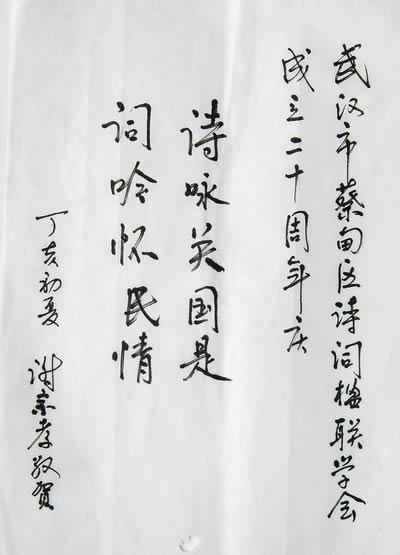 武汉市蔡甸区诗词楹联学会
成立二十周年庆
诗咏关国是
词吟怀民情
丁亥初夏 谢宗孝敬贺